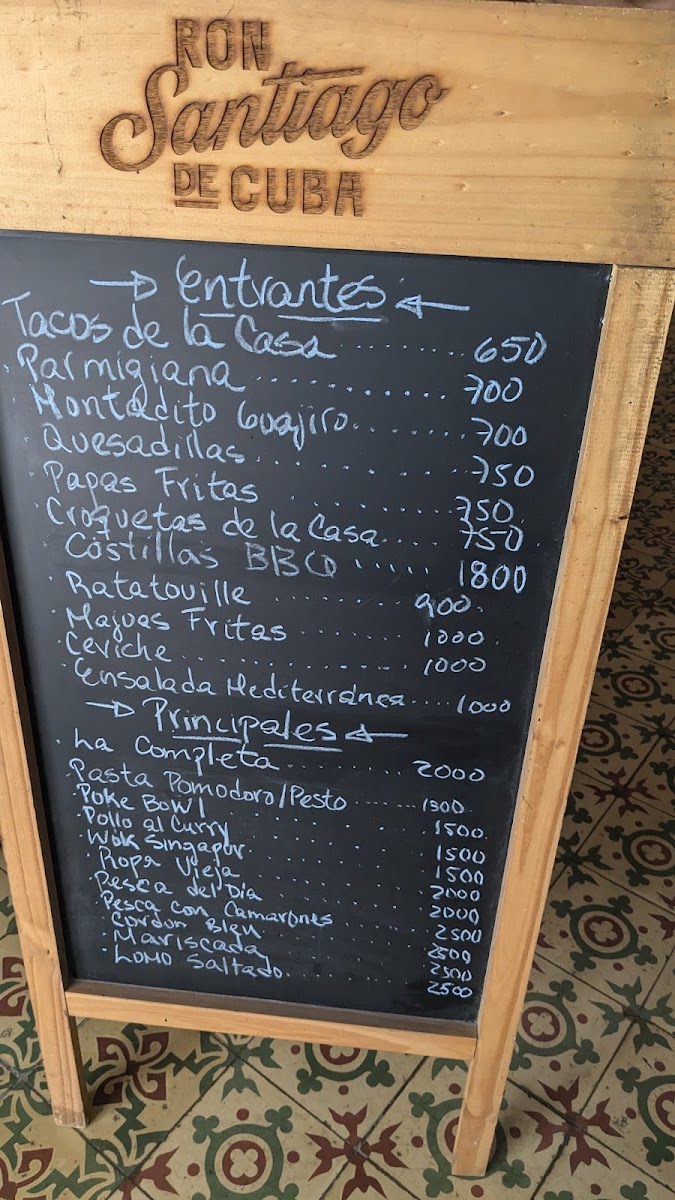 RON
Santiago
DE CUBA
→ Entrantes ←
Tacos de la Casa ......... 650
Parmigiana ............ 700
Montadito Guajiro ....... 700
Quesadillas ......... 750
Papas Fritas ......... 750
Croquetas de la Casa .... 750
Costillas BBQ ...... 1800
Ratatouille ......... 900
Majuas Fritas ........ 1000
Ceviche ............ 1000
Ensalada Mediterránea .... 1000
→ Principales ←
La Completa ......... 2000
Pasta Pomodoro/Pesto ....... 1300
Poke Bowl ......... 1500
Pollo al Curry ......... 1500
Wok Singapur ......... 1500
Ropa Vieja ......... 2000
Pesca del Dia ......... 2000
Pesca con Camarones ...... 2500
Cordon Bleu ......... 2500
Mariscada ......... 2500
Lomo Saltado ......... 2500